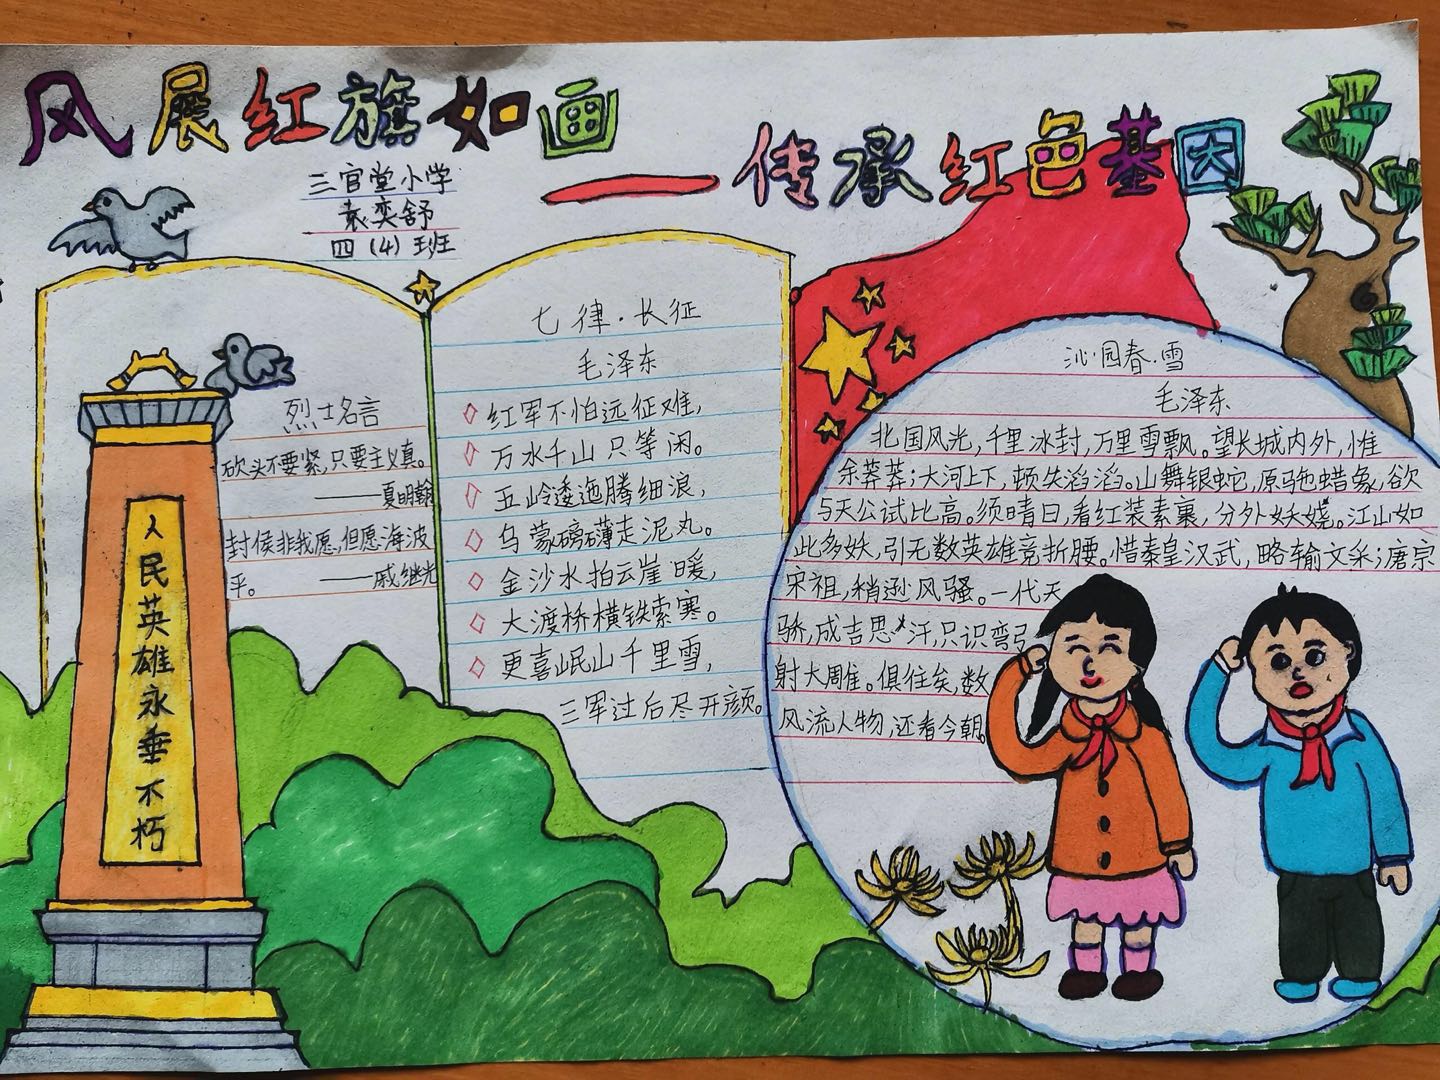 风展红旗如画
——传承红色基因
三官堂小学
袁奕舒
四(4)班
烈士名言
砍头不要紧,只要主义真。
——夏明翰
封侯非我愿,但愿海波
平。 ——戚继光
人民英雄永垂不朽
七律·长征
毛泽东
红军不怕远征难,
万水千山只等闲。
五岭逶迤腾细浪,
乌蒙磅礴走泥丸。
金沙水拍云崖暖,
大渡桥横铁索寒。
更喜岷山千里雪,
三军过后尽开颜。
沁园春·雪
毛泽东
北国风光,千里冰封,万里雪飘。望长城内外,惟
余莽莽;大河上下,顿失滔滔。山舞银蛇,原驰蜡象,欲
与天公试比高。须晴日,看红装素裹,分外妖娆。江山如
此多娇,引无数英雄竞折腰。惜秦皇汉武,略输文采;唐宗
宋祖,稍逊风骚。一代天
骄,成吉思汗,只识弯弓
射大雕。俱往矣,数
风流人物,还看今朝。